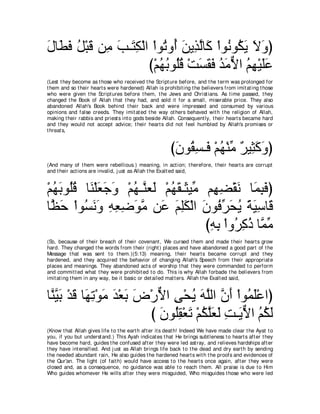 (وَلاَ يَكُونُواْ كَالَّذِينَ أُوتُواْ الْكِتَـبَ مِن قَبْلُ فَطَالَ
عَلَيْهِمُ الاٌّمَدُ فَقَسَتْ قُلُوبُهُمْ)
(Lest they become as those who received the Scripture before, and the term was prolonged for
them and so their hearts were hardened) Allah is prohibiting the believers from imitating those
who were given the Scriptures before them, the Jews and Christians. As time passed, they
changed the Book of Allah that they had, and sold it for a small, miserable price. They also
abandoned Allah's Book behind their back and were impressed and consumed by various
opinions and false creeds. They imitated the way others behaved with the religion of Allah,
making their rabbis and priests into gods beside Allah. Consequently, their hearts became hard
and they would not accept advice; their hearts did not feel humbled by Allah's promises or
threats,
(وَكَثِيرٌ مِّنْهُمْ فَـسِقُونَ)
(And many of them were rebellious.) meaning, in action; therefore, their hearts are corrupt
and their actions are invalid, just as Allah the Exalted said,
(فَبِمَا نَقْضِهِم مِّيثَـقَهُمْ لَعنَّـهُمْ وَجَعَلْنَا قُلُوبَهُمْ
قَاسِيَةً يُحَرِّفُونَ الْكَلِمَ عَن مَّوَضِعِهِ وَنَسُواْ حَظَّا
مِّمَّا ذُكِرُواْ بِهِ)
(So, because of their breach of their covenant, We cursed them and made their hearts grow
hard. They changed the words from their (right) places and have abandoned a good part of the
Message that was sent to them.)(5:13) meaning, their hearts became corrupt and they
hardened, and they acquired the behavior of changing Allah's Speech from their appropriate
places and meanings. They abandoned acts of worship that they were commanded to perform
and committed what they were prohibited to do. This is why Allah forbade the believers from
imitating them in any way, be it basic or detailed matters. Allah the Exalted said,
(اعْلَمُواْ أَنَّ اللَّهَ يُحْىِ الاٌّرْضَ بَعْدَ مَوْتِهَا قَدْ بَيَّنَّا
لَكُمُ الاٌّيَـتِ لَعَلَّكُمْ تَعْقِلُونَ )
(Know that Allah gives life to the earth after its death! Indeed We have made clear the Ayat to
you, if you but understand.) This Ayah indicates that He brings subtleness to hearts after they
have become hard, guides the confused after they were led astray, and relieves hardships after
they have intensified. And just as Allah brings life back to the dead and dry earth by sending
the needed abundant rain, He also guides the hardened hearts with the proofs and evidences of
the Qur'an. The light (of faith) would have access to the hearts once again, after they were
closed and, as a consequence, no guidance was able to reach them. All praise is due to Him
Who guides whomever He wills after they were misguided, Who misguides those who were led